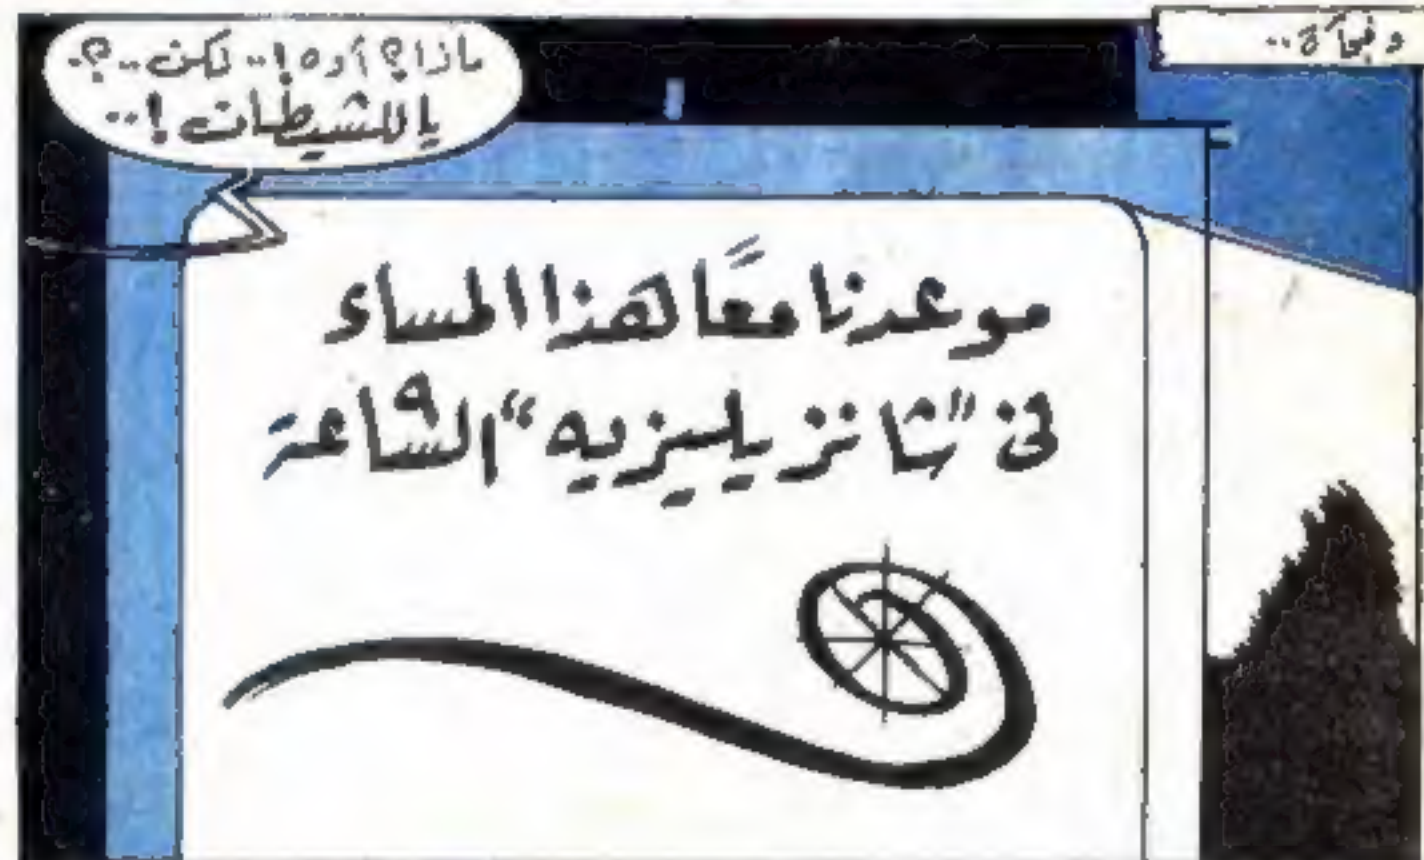 وفجأة..
ماذا؟ أوه!.. لكن..؟.
يا للشيطان!..
موعدنا معًا هذا المساء
في "شانزيليزيه" الساعة ٩